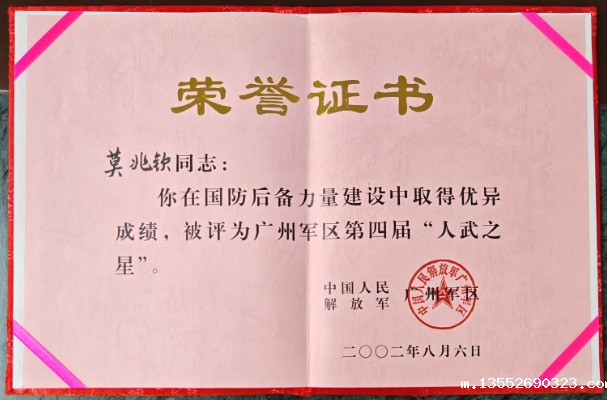 荣誉证书
莫兆钦同志：
你在国防后备力量建设中取得优异
成绩，被评为广州军区第四届“人武之
星”。
中国人民
解放军
广州军区
中国人民解放军广州军区
二〇〇二年八月六日
m.13552690323.com